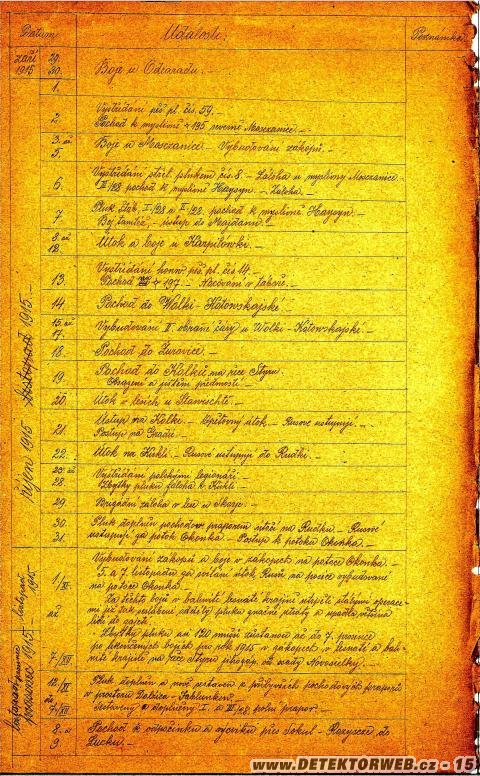 Datum Události. Poznámka
září 1915 29. 30. Boje u Odčaradu.
1.
2. Vystřídání pěš. pl. čís. 59. —
Pochod k myslivně 195 severně Moszczanice. —
3. až 5. Boje u Moszczanice. Vybudování zákopů. —
6. Vystřídání střel. plukem čís. 8 – Záloha u myslivny Moszczanice.
II/28 pochod k myslivně Haysyn. — Záloha. —
7. Pluk. štáb, I/28 a II/28. pochod k myslivně Haysyn. —
Boj tamtéž, – ústup do Majdanu. —
8. až 12. Útok a boje u Karpilowki. —
13. Vystřídání honv. pěš. pl. čís 14. —
Pochod 197. — Nocování v táboře. —
14. Pochod do Wolki - Kotowskajské. —
15. až 17. Vybudování II. obranné čáry u Wolki - Kotowskajské. —
18. Pochod do Zurovice. —
19. Pochod do Kolků na řece Styru.
Obsazení a jištění předmostí. —
20. Útok v lesích u Stawischtě. —
21. Ústup na Kolki. — Opětovný útok. — Rusové ustupují. —
Postup na Gradie. —
22. Útok na Kukli. — Rusové ustupují do Rudki. —
23. až 28. Vystřídání polskými legionáři. —
Zbytky pluku záloha k Kukli. —
29. Brigádní záloha v lese u Skarje. —
30. Pluk doplněn pochodov. praporem útočí na Rudku. — Rusové
31. ustupují za potok Okonka. — Postup k potoku Okonka. —
říjen 1915 - listopad 1915. —
1/XI až 7/XII Vybudování zákopů a boje v zákopech na potoce Okonka. —
5. a 7. listopadu za svítání útok Rusů na posice vybudované
na potoce Okonka. —
Za těchto bojů v bahnité lesnaté krajině utrpěly stálými operacemi
již tak seslabené zbytky pluku značné ztráty a upadla většina
lidí do zajetí. —
Zbytky pluku as 120 mužů zůstanou až do 7. prosince
po skončených bojích pro rok 1915 v zákopech v lesnaté a bahnité
krajině na řece Styru jihozáp. od osady Novoselky. —
12./XI až 7./XII Pluk doplněn a nově sestaven z přibyvších pochodových praporů
v prostoru Zolnica - Jablunken.
Sestavený a doplněný I. a III/28. polní prapor. —
8. a 9. Pochod k odpočinku a výcviku přes Sokul - Rozyszcze do
Lucku. —
listopad-prosinec 1915 - listopad 1915
www.DETEKTORWEB.cz - 15